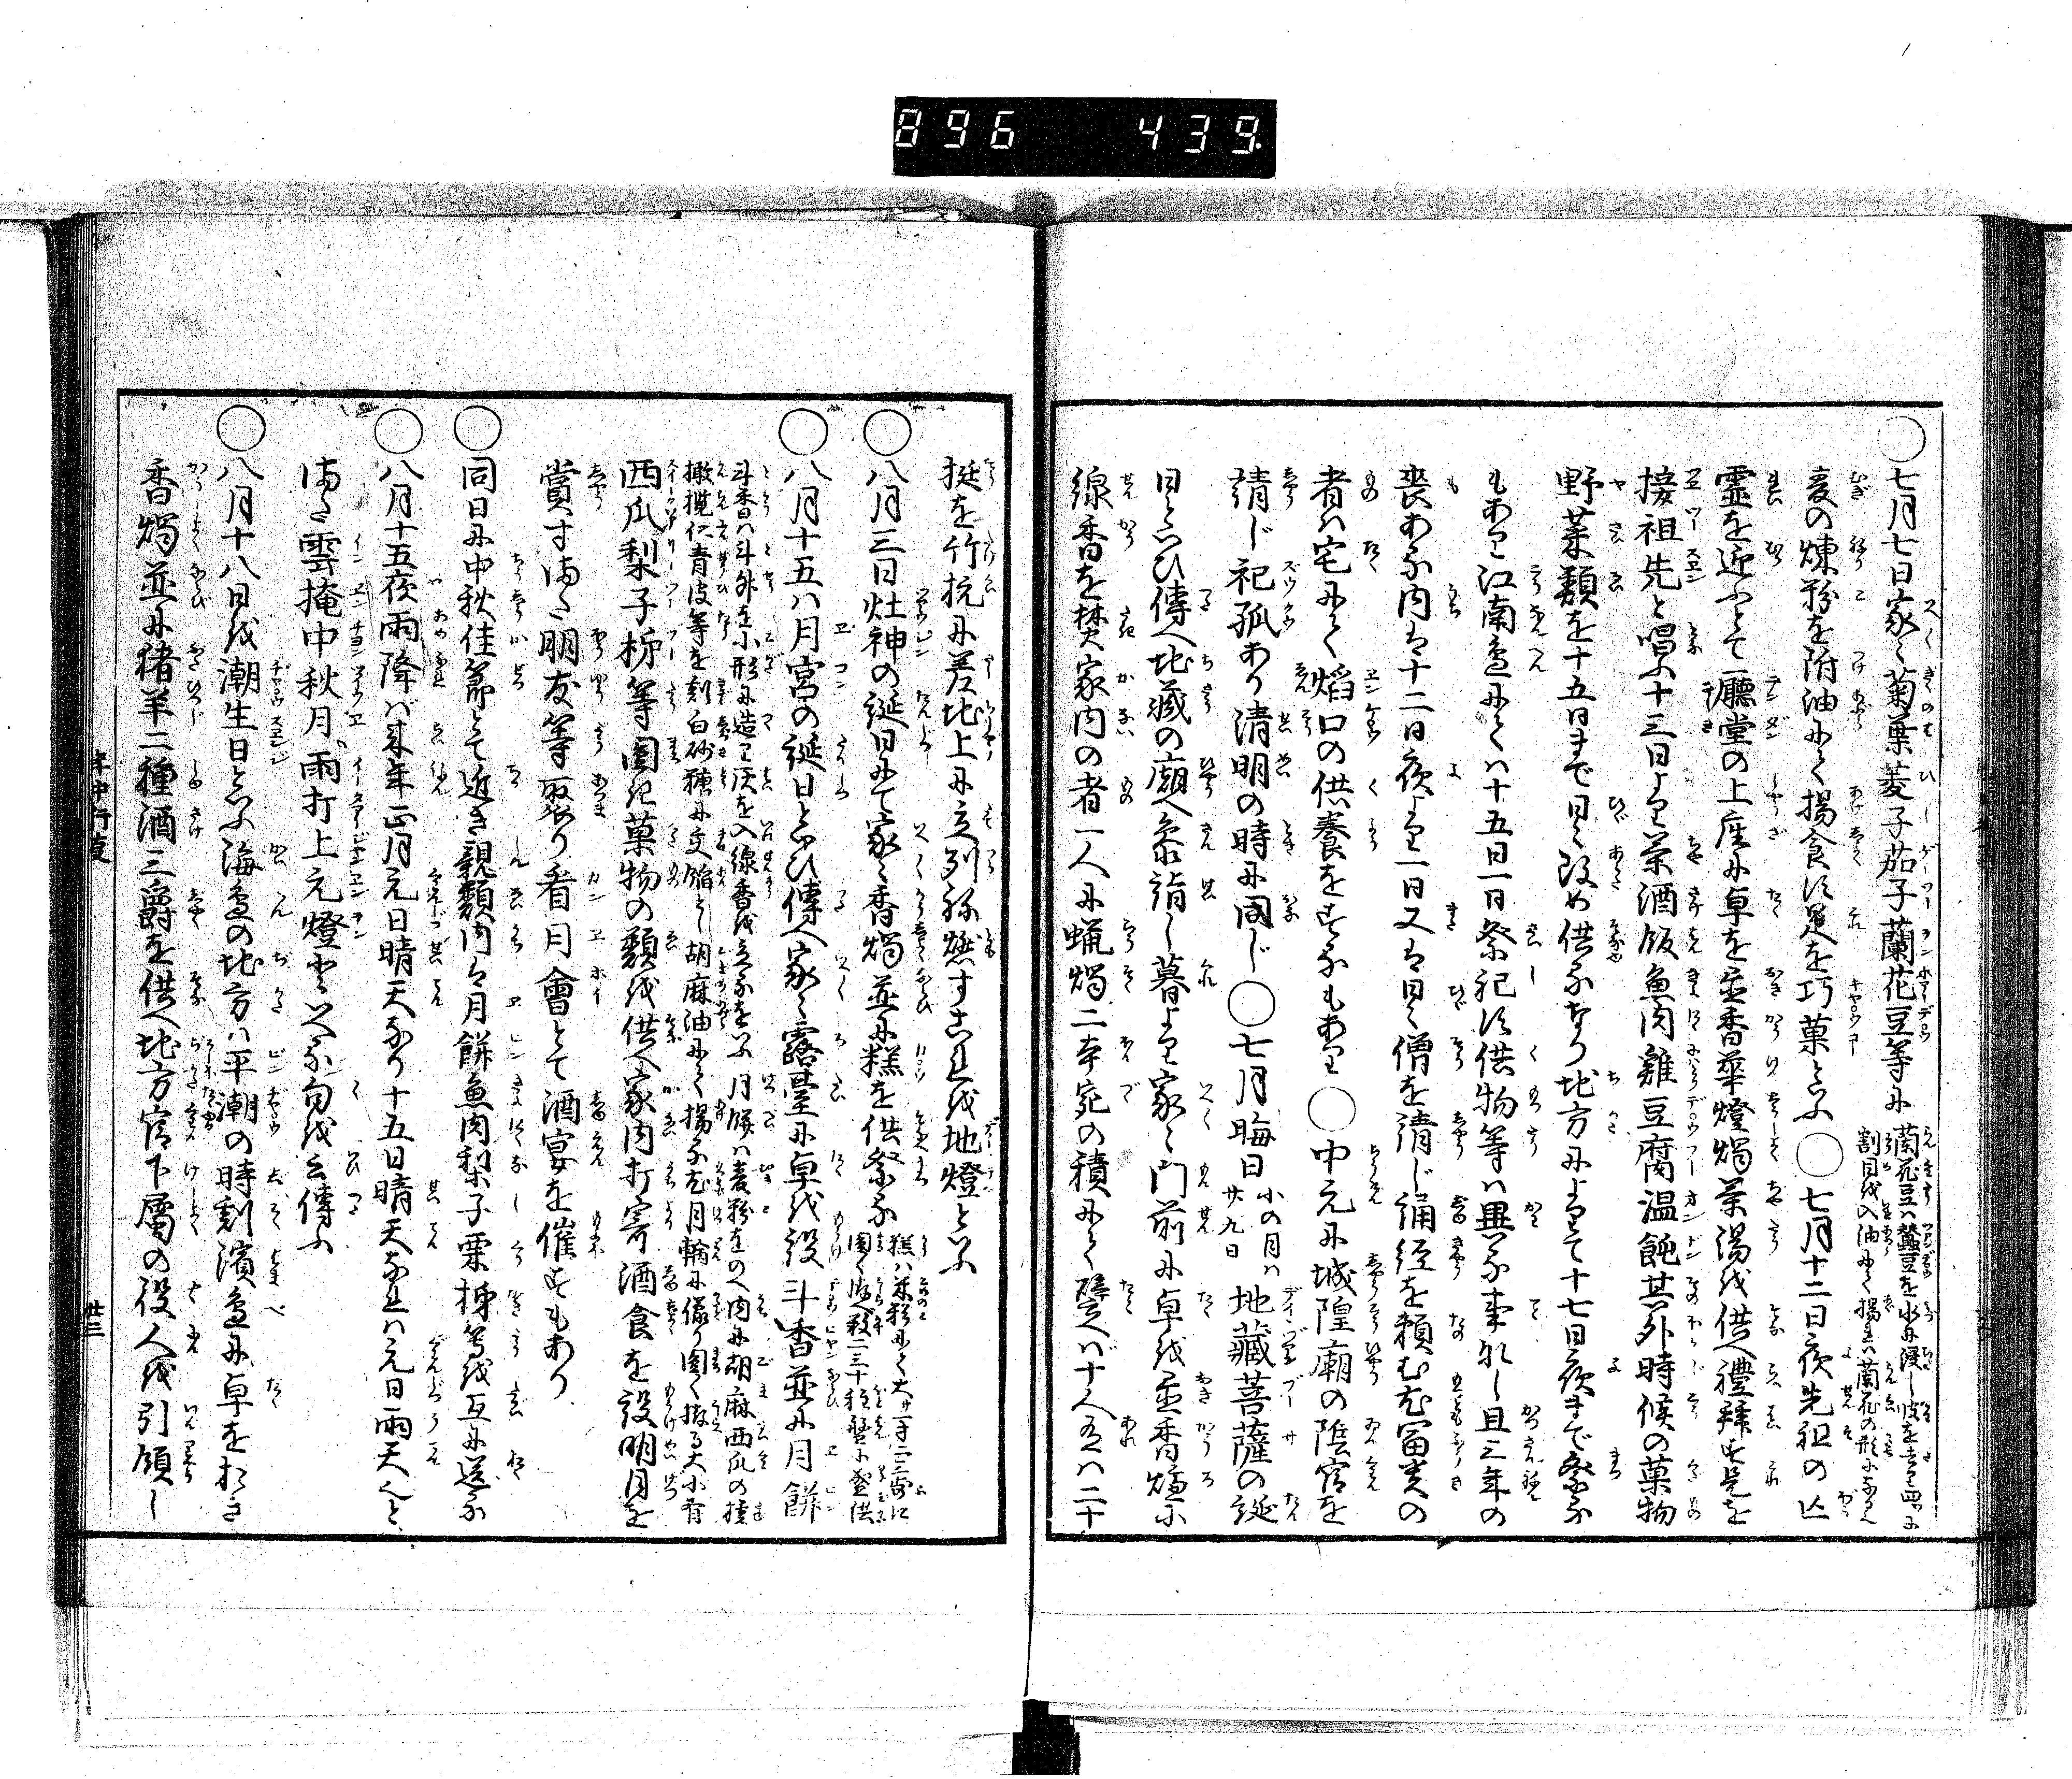 896 439
○七月七日家〻菊葉菱子茄子蘭花豆等に蘭花豆ハ蠶豆を水に浸し皮を去り四ツに
割目を入油にて揚れハ蘭花の形になる
麦の煉粉を附油にて揚食す是を巧菓といふ○七月十二日夜先祖の亡
霊を迎ふとて廳堂の上座に卓を並香華燈燭茶湯を供へ禮拜す是を
接祖先と唱ふ十三日より茶酒飯魚肉雞豆腐温飩其外時候の菓物
野菜類を十五日まで日〻改め供るなり地方によりて十七日夜まで祭る
もあり江南邊にてハ十五日一日祭祀す供物等ハ異る事なし且三年の
喪ある内は十二日夜より一日又は日〻僧を請じ誦経を頼むむ冨貴の
者ハ宅にて焰口の供養をするもあり○中元に城隍廟の陰官を
請じ祀孤あり清明の時に同じ○七月晦日小の月ハ
廿九日地藏菩薩の誕
日といひ傳へ地藏の廟へ参詣し暮より家〻門前に卓を並香爐に
線香を焚家内の者一人に蝋燭二本宛の積にて譬へバ十人あれハ二十
挺を竹杭に差地上に立列ね燃すこれを地燈といふ
○八月三日灶神の誕日にて家〻香燭並に糕を供祭る糕ハ米粉にて大サ一寸二三歩に
圓く拵へ数二三十程盤に盛供
○八月十五ハ月宮の誕日といひ傳へ家〻露臺に卓を設斗香並に月餅
斗香ハ斗外を小形に造り灰を入線香を立るをいふ月餅ハ麦粉をのべ内に胡麻西瓜の種
橄欖仁青皮等を刻白砂糖に交餡とし胡麻油にて揚る尤月輪に像り圓く拵る大小有
西瓜梨子栃等圓き菓物の類を供へ家内打寄酒食を設明月を
賞すまた朋友等取集り看月會とて酒宴を催すもあり
○同日に中秋佳節とて近き親類内は月餅魚肉梨子栗柿等を互に送る
○八月十五夜雨降バ来年正月元日晴天なり十五日晴天なれハ元日雨天なりと
まゝ雲掩中秋月、雨打上元燈といへる句を云傳ふ
○八月十八日を潮生日といふ海邊の地方ハ平潮の時刻濱邊に卓をおき
香燭並に猪羊二種酒三爵を供へ地方官下属の役人を引領し
年中行支 廿三